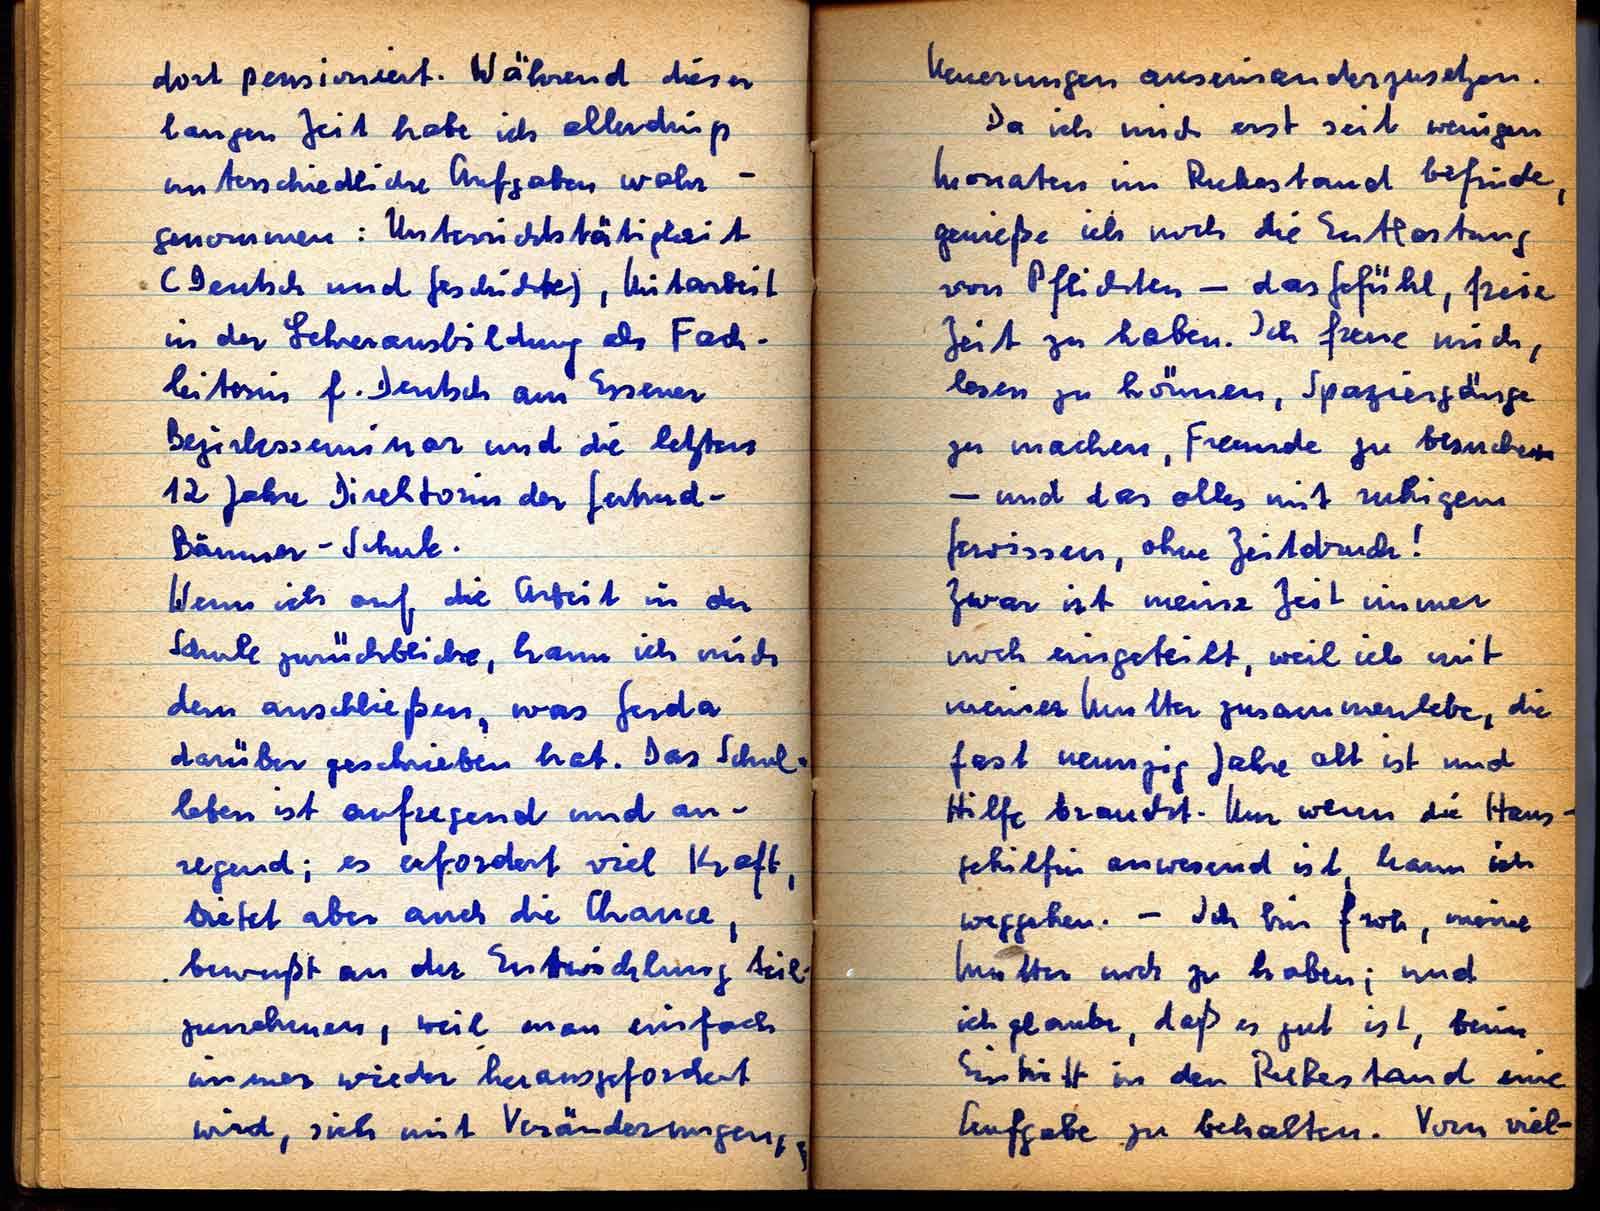 dort pensioniert. Während dieser
langen Zeit habe ich allerdings
unterschiedliche Aufgaben wahr-
genommen: Unterrichtstätigkeit
(Deutsch und Geschichte), Mitarbeit
in der Lehrerausbildung als Fach-
leiterin f. Deutsch am Essener
Bezirksseminar und die letzten
12 Jahre Direktorin der Gertrud-
Bäumer-Schule.
Wenn ich auf die Arbeit in der
Schule zurückblicke, kann ich mich
dem anschließen, was Gerda
darüber geschrieben hat. Das Schul-
leben ist aufregend und an-
regend; es erfordert viel Kraft,
bietet aber auch die Chance,
bewußt an der Entwicklung teil-
zunehmen, weil man einfach
immer wieder herausgefordert
wird, sich mit Veränderungen,
Neuerungen auseinanderzusetzen.
Da ich mich erst seit wenigen
Monaten im Ruhestand befinde,
genieße ich noch die Entlastung
von Pflichten – das Gefühl, freie
Zeit zu haben. Ich freue mich,
lesen zu können, Spaziergänge
zu machen, Freunde zu besuchen
– und das alles mit ruhigem
Gewissen, ohne Zeitdruck!
Zwar ist meine Zeit immer
noch eingeteilt, weil ich mit
meiner Mutter zusammenlebe, die
fast neunzig Jahre alt ist und
Hilfe braucht. Nur wenn die Haus-
gehilfin anwesend ist, kann ich
weggehen. – Ich bin froh, meine
Mutter noch zu haben; und
ich glaube, daß es gut ist, beim
Eintritt in den Ruhestand eine
Aufgabe zu behalten. Vom viel-